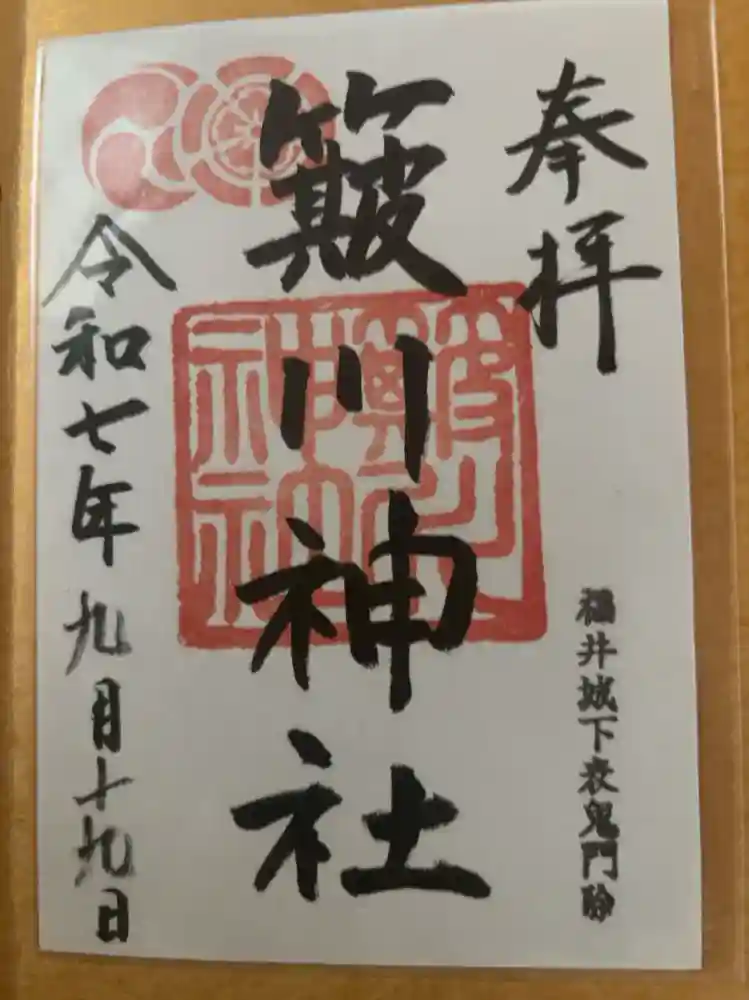 奉拝
福井城下表鬼門除
簸川神社
令和七年九月十九日
簸川神社